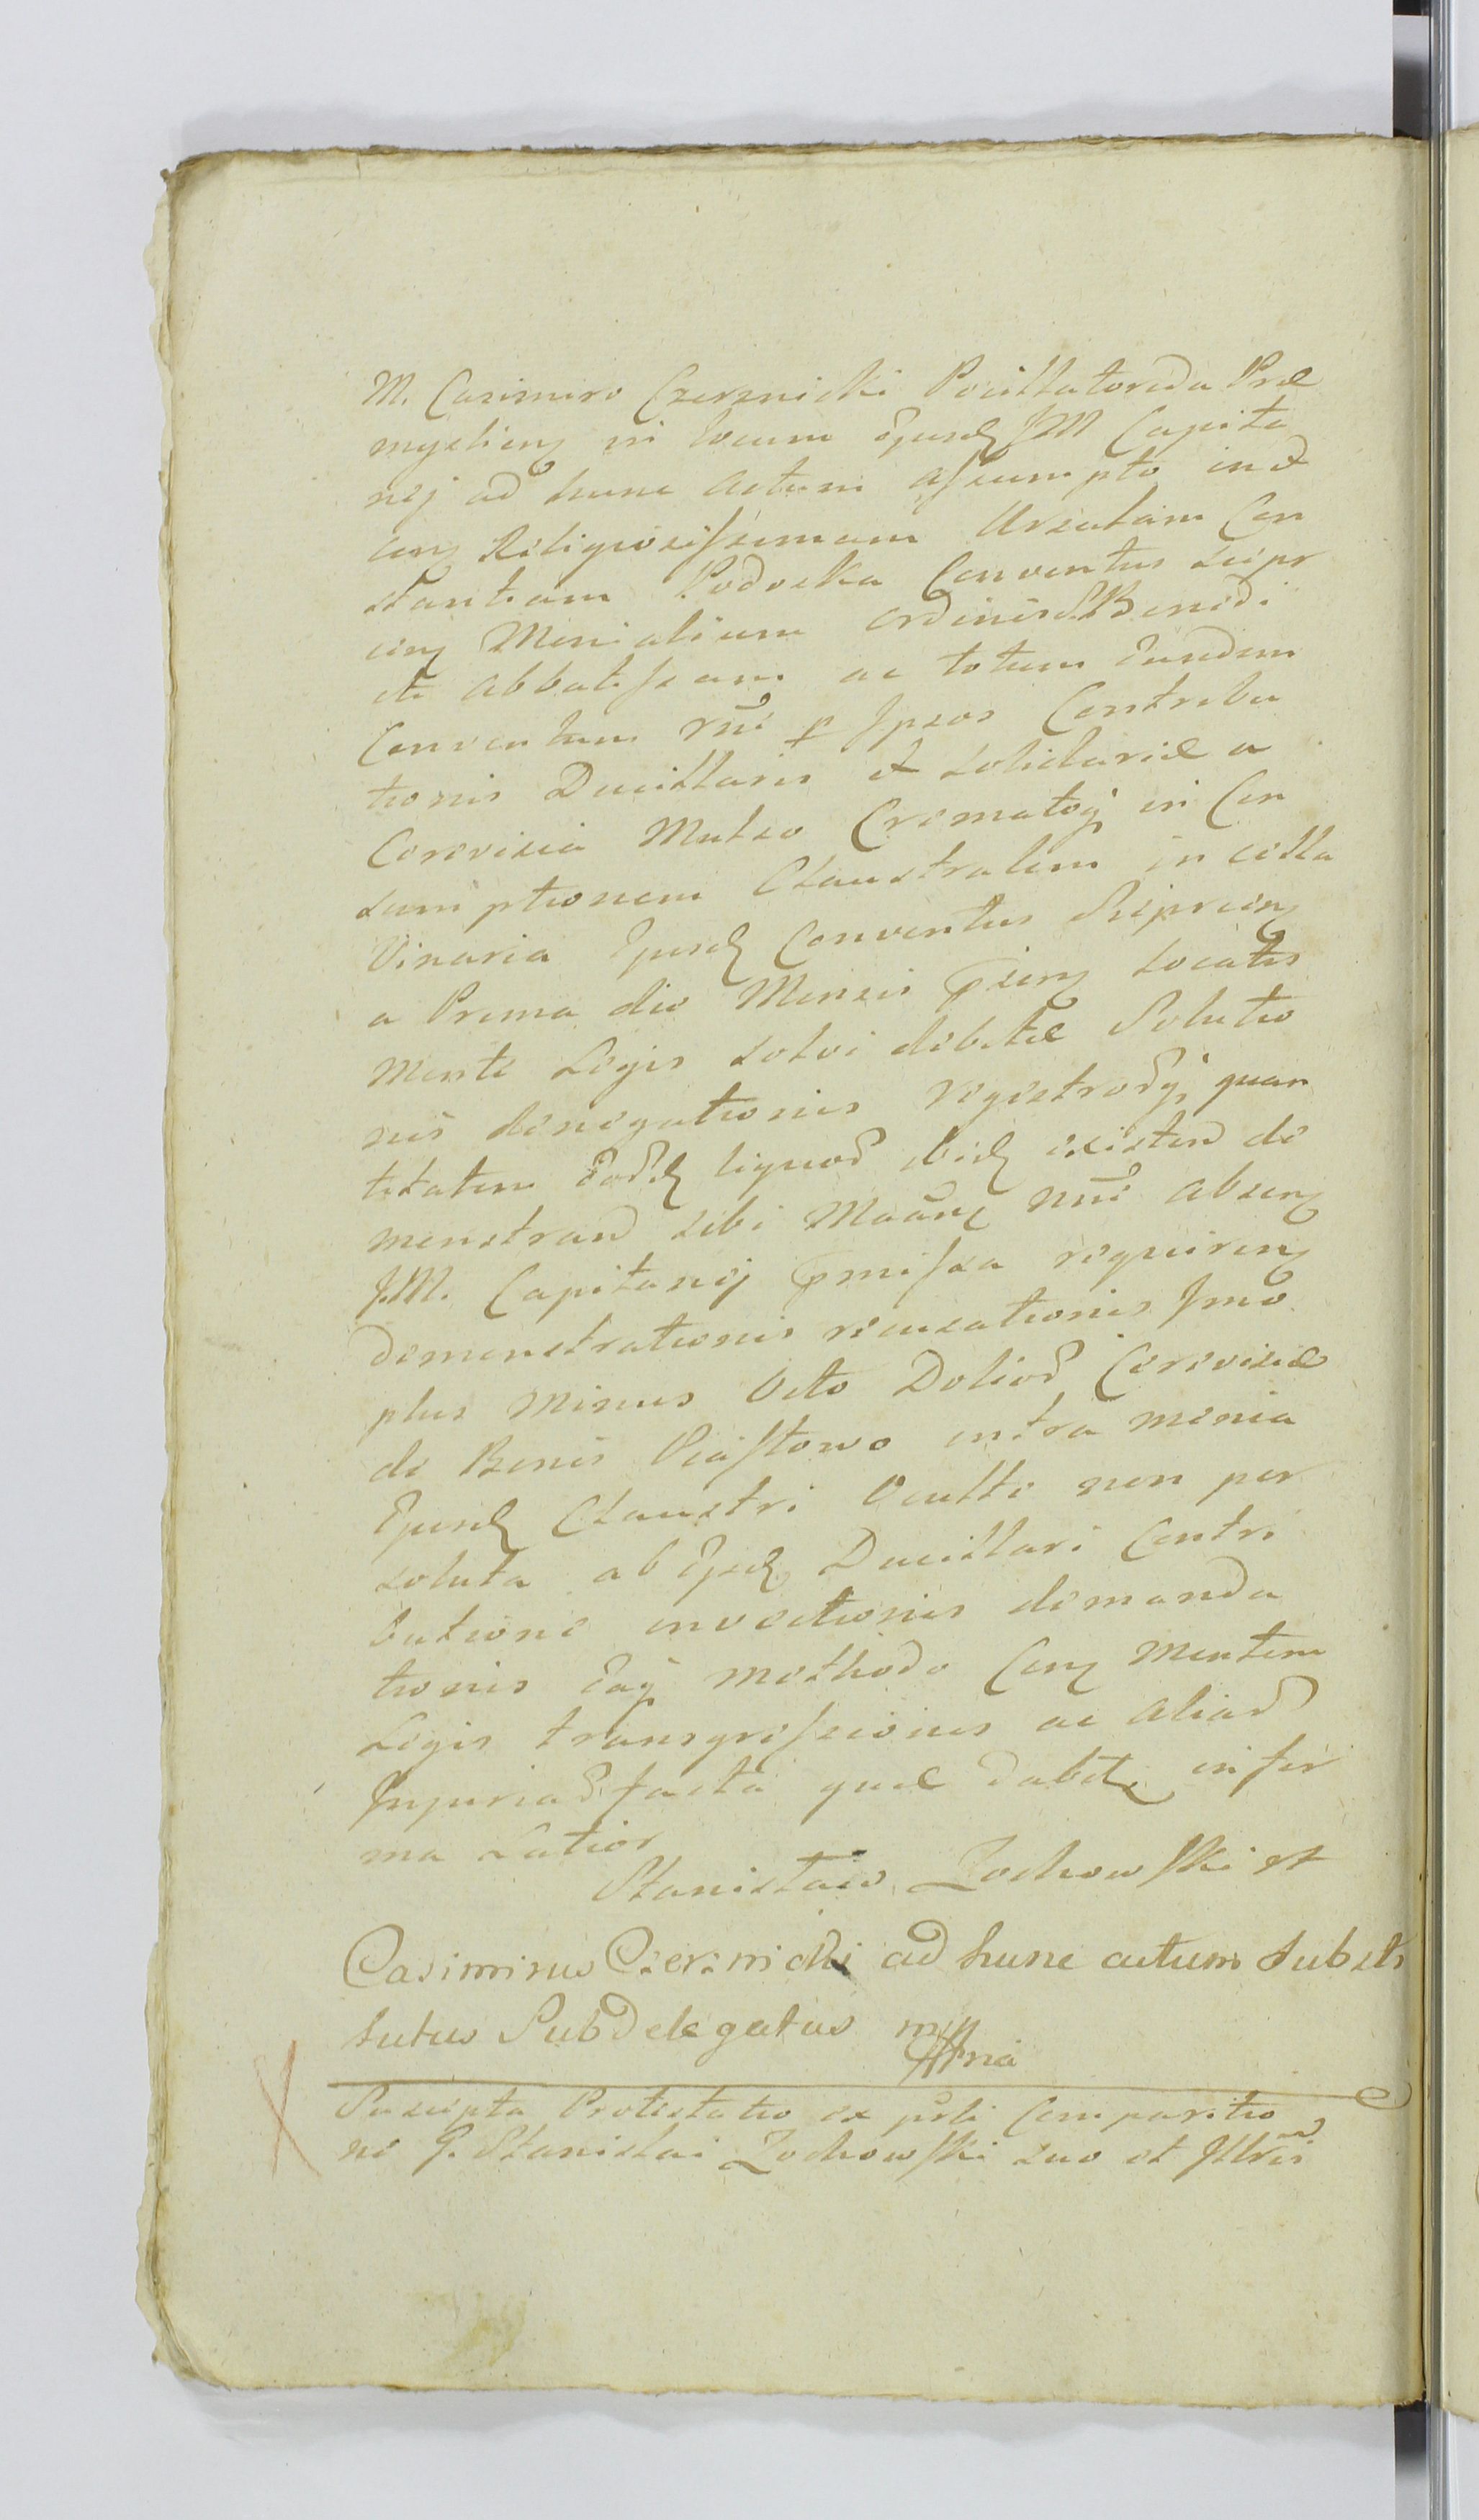 M. Casimiro Czerznicki Pocillatorida Præ
mysliens in locum Ejusd JM Capita
nej ad hunc Actum assumpto in et
cong Religiosissimam Ursulam Con
stantiam Podoska Conventus Sierpc
ceng Monialium Ordinis S Benedi
cti Abbatissam ac totum Eundem
Conventum rne p Ipsos Contribu
tionis Ducillaris et solidariæ a
Cerevisia Mulso Crematoq in Con
sumptionem Claustralem in cella
Vinaria Ejusd Conventus Sieprceng
a Prima die Mensis pseng locatis
mente Legis solvi debitæ Solutio
nis denegationis registrorq quan
titatem Eord liquor ibid existend de
monstrand sibi nne absenq
J.M. Capitanej pmissa requireng
Demonstrationis recusationis Imo
plus minus Octo Dolior Cerevisiæ
de Bonis Piastowo intra menia
Ejusd Claustri Occulte non per
soluta ab Ejsd Ducillari Contri
butione invectionis demanda
tionis Eaq methodo Cong Mentem
Legis transgressionis ac aliar
Injuriar facta quæ dabitr in for
ma Latior
Stanislaus Zochowski et
Casimirus Czerznicki ad hunc actum Substi
tutus Subdelegatus mp
Suscepta Protestatio ex psli Comparitio
ne G. Stanislai Zochowski suo et Illris